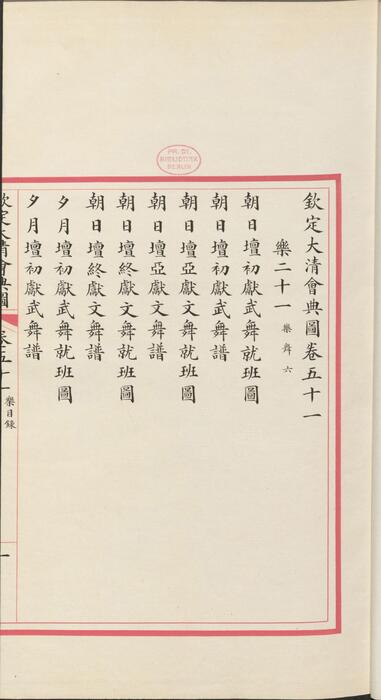 欽定大清會典圖卷五十一
樂二十一 樂舞六
朝日壇初獻武舞就班圖
朝日壇初獻武舞譜
朝日壇亞獻文舞就班圖
朝日壇亞獻文舞譜
朝日壇終獻文舞就班圖
朝日壇終獻文舞譜
夕月壇初獻武舞就班圖
夕月壇初獻武舞譜
欽定大清會典圖 卷五十一 樂目錄 一
PR. ST.
BIBLIOTHEK
BERLIN